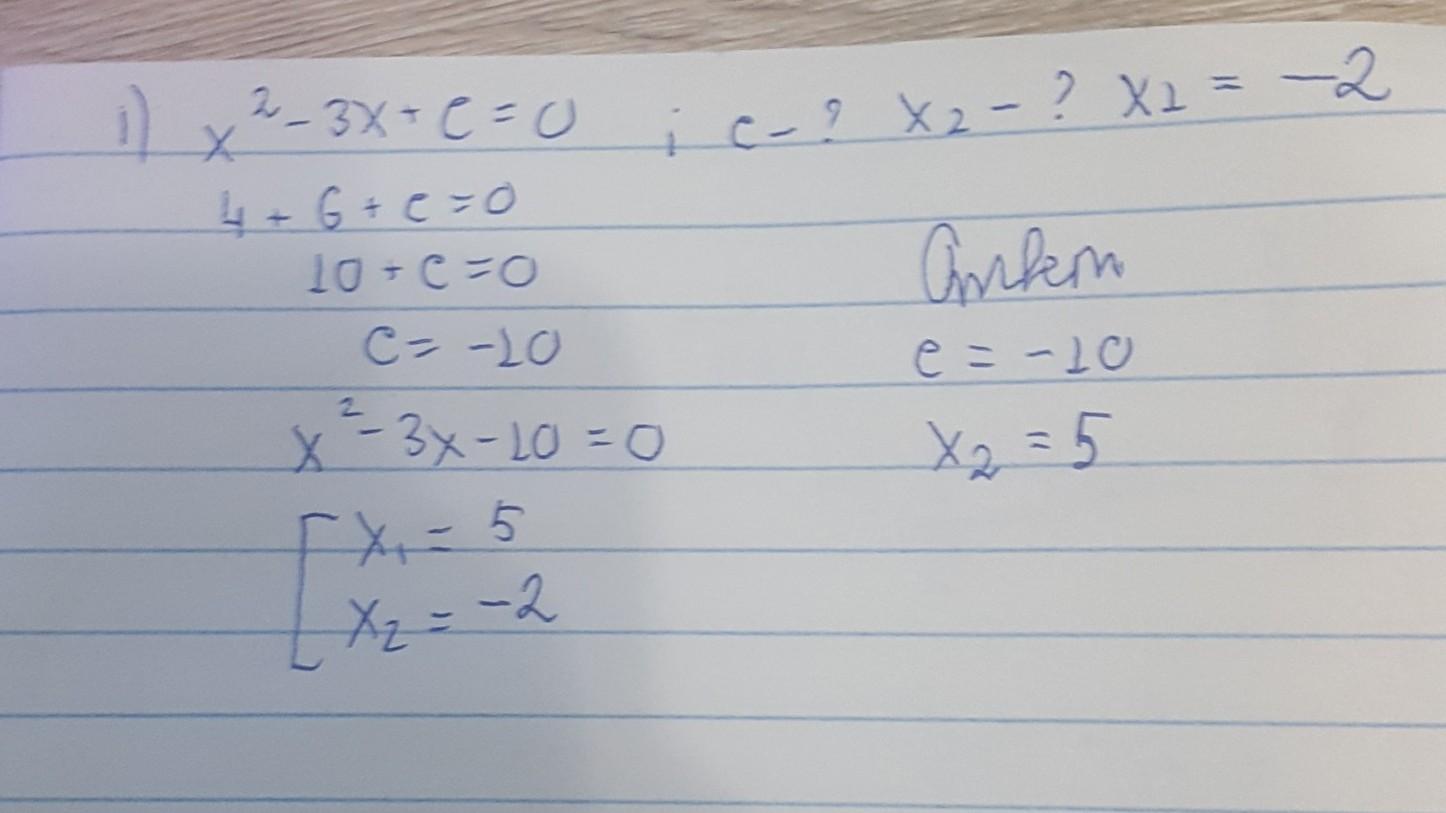 1) x² - 3x + c = 0 ; c - ? x₂ - ? x₁ = -2
4 + 6 + c = 0
10 + c = 0
c = -10
x² - 3x - 10 = 0
x₁ = 5
x₂ = -2
Ответ
c = -10
x₂ = 5